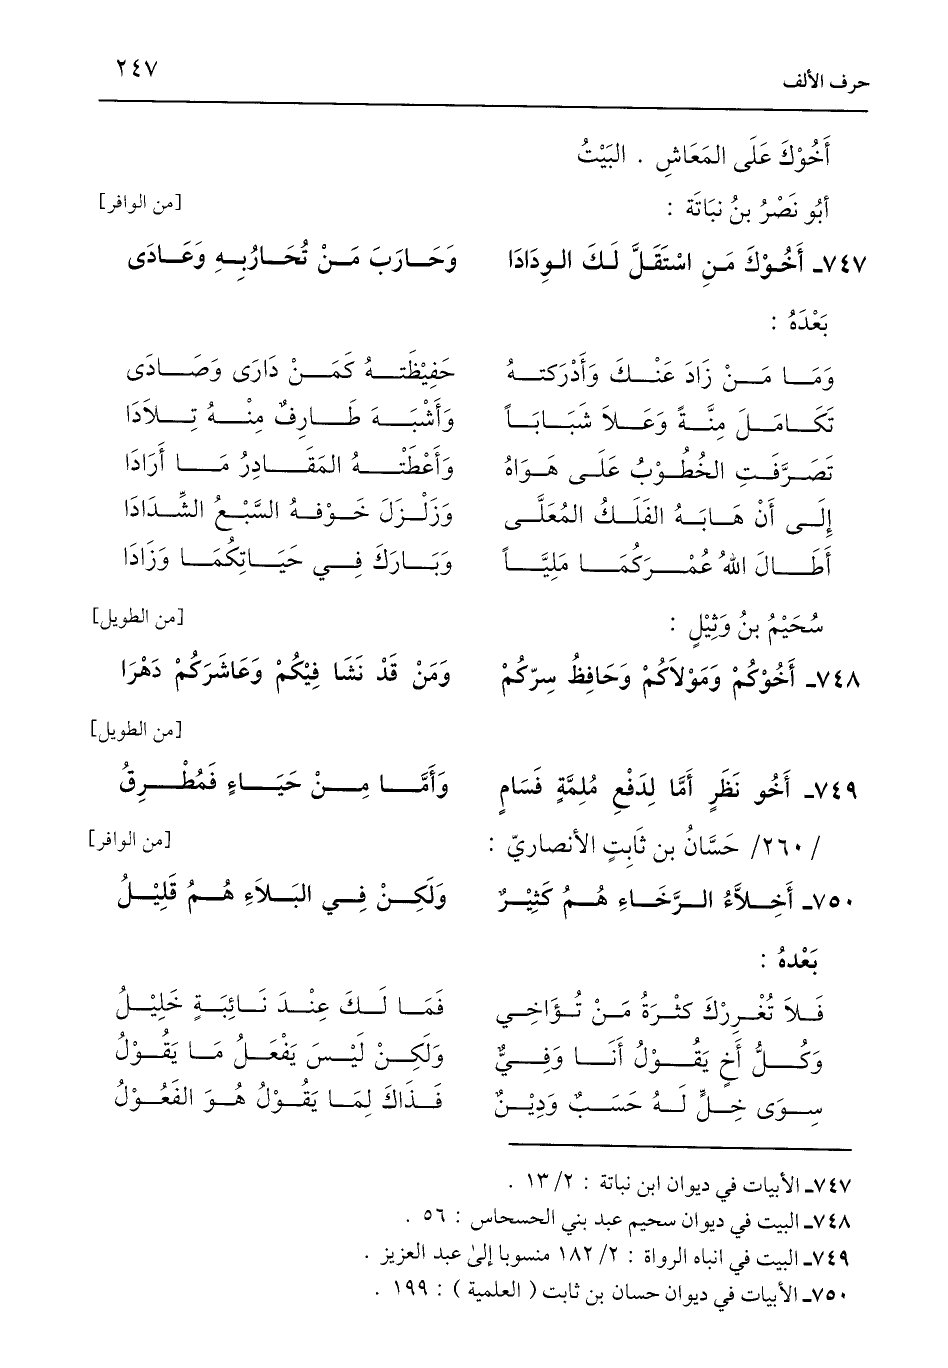 حرف الألف ٢٤٧
أَخُوْكَ عَلَى المَعَاشِ . البَيْتُ
أبُو نَصْرُ بنُ نبَاتَة : [من الوافر]
٧٤٧ـ أَخُوْكَ مَنِ اسْتَقَلَّ لَكَ الوِدَادَا وَحَارَبَ مَنْ تُحَارِبُهِ وَعَادَى
بَعْدَهُ :
وَمَا مَنْ زَادَ عَنْكَ وَأَدْرَكتهُ حَفِيْظَتهُ كَمَنْ دَارَى وَصَادَى
تَكَامَلَ مِنَّةً وَعَلاَ شَبَابَاً وَأَشْبَهَ طَارِفٌ مِنْهُ تِلاَدَا
تَصَرَّفَتِ الخُطُوْبُ عَلَى هَوَاهُ وَأَعْطَتْهُ المَقَادِرُ مَا أَرَادَا
إِلَى أَنْ هَابَهُ الفَلَكُ المُعَلَّى وَزَلْزَلَ خَوْفهُ السَّبْعُ الشِّدَادَا
أَطَالَ اللهُ عُمْرَكُمَا مَلِيَّاً وَبَارَكَ فِي حَيَاتِكُمَا وَزَادَا
سُحَيْمُ بنُ وَثِيْلٍ : [من الطويل]
٧٤٨ـ أَخُوْكُمْ وَمَوْلاَكُمْ وَحَافِظُ سِرّكُمْ وَمَنْ قَدْ نَشَا فِيْكُمْ وَعَاشَرَكُمْ دَهْرَا
[من الطويل]
٧٤٩ـ أَخُو نَظَرٍ أَمَّا لِدَفْعِ مُلِمَّةٍ فَسَامٍ وَأَمَّا مِنْ حَيَاءٍ فَمُطْرِقُ
/ ٢٦٠/ حَسَّانُ بن ثَابِتٍ الأنصاريّ : [من الوافر]
٧٥٠ـ أَخِلاَّءُ الرَّخَاءِ هُمُ كَثِيْرٌ وَلَكِنْ فِي البَلاَءِ هُمُ قَلِيْلُ
بَعْدهُ :
فَلاَ تُغْرِرْكَ كثْرَةُ مَنْ تُؤَاخِي فَمَا لَكَ عِنْدَ نَائِبَةٍ خَلِيْلُ
وَكُلُّ أَخٍ يَقُوْلُ أَنَا وَفِيٌّ وَلَكِنْ لَيْسَ يَفْعَلُ مَا يَقُوْلُ
سِوَى خِلٍّ لَهُ حَسَبٌ وَدِيْنٌ فَذَاكَ لِمَا يَقُوْلُ هُوَ الفَعُوْلُ
٧٤٧ـ الأبيات في ديوان ابن نباتة : ٢/ ١٣ .
٧٤٨ـ البيت في ديوان سحيم عبد بني الحسحاس : ٥٦ .
٧٤٩ـ البيت في انباه الرواة : ٢/ ١٨٢ منسوبا إلى عبد العزيز .
٧٥٠ـ الأبيات في ديوان حسان بن ثابت ( العلمية ) : ١٩٩ .